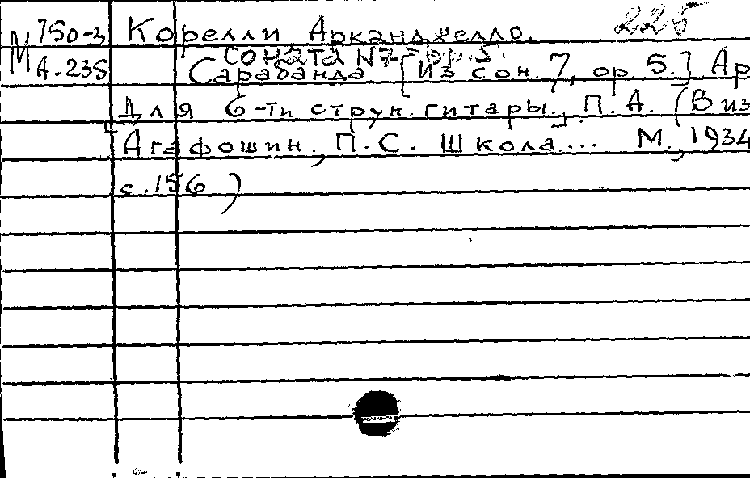 М 750-3 Корелли Арканджелло. 225
Соната №7 op. 5.
М А-235 Сарабанда [Из сон. 7, ор 5.] Ар
Для 6-ти струн. гитары], П. А. (В из
Агафошин, П.С. Школа... М., 1934
с. 156)